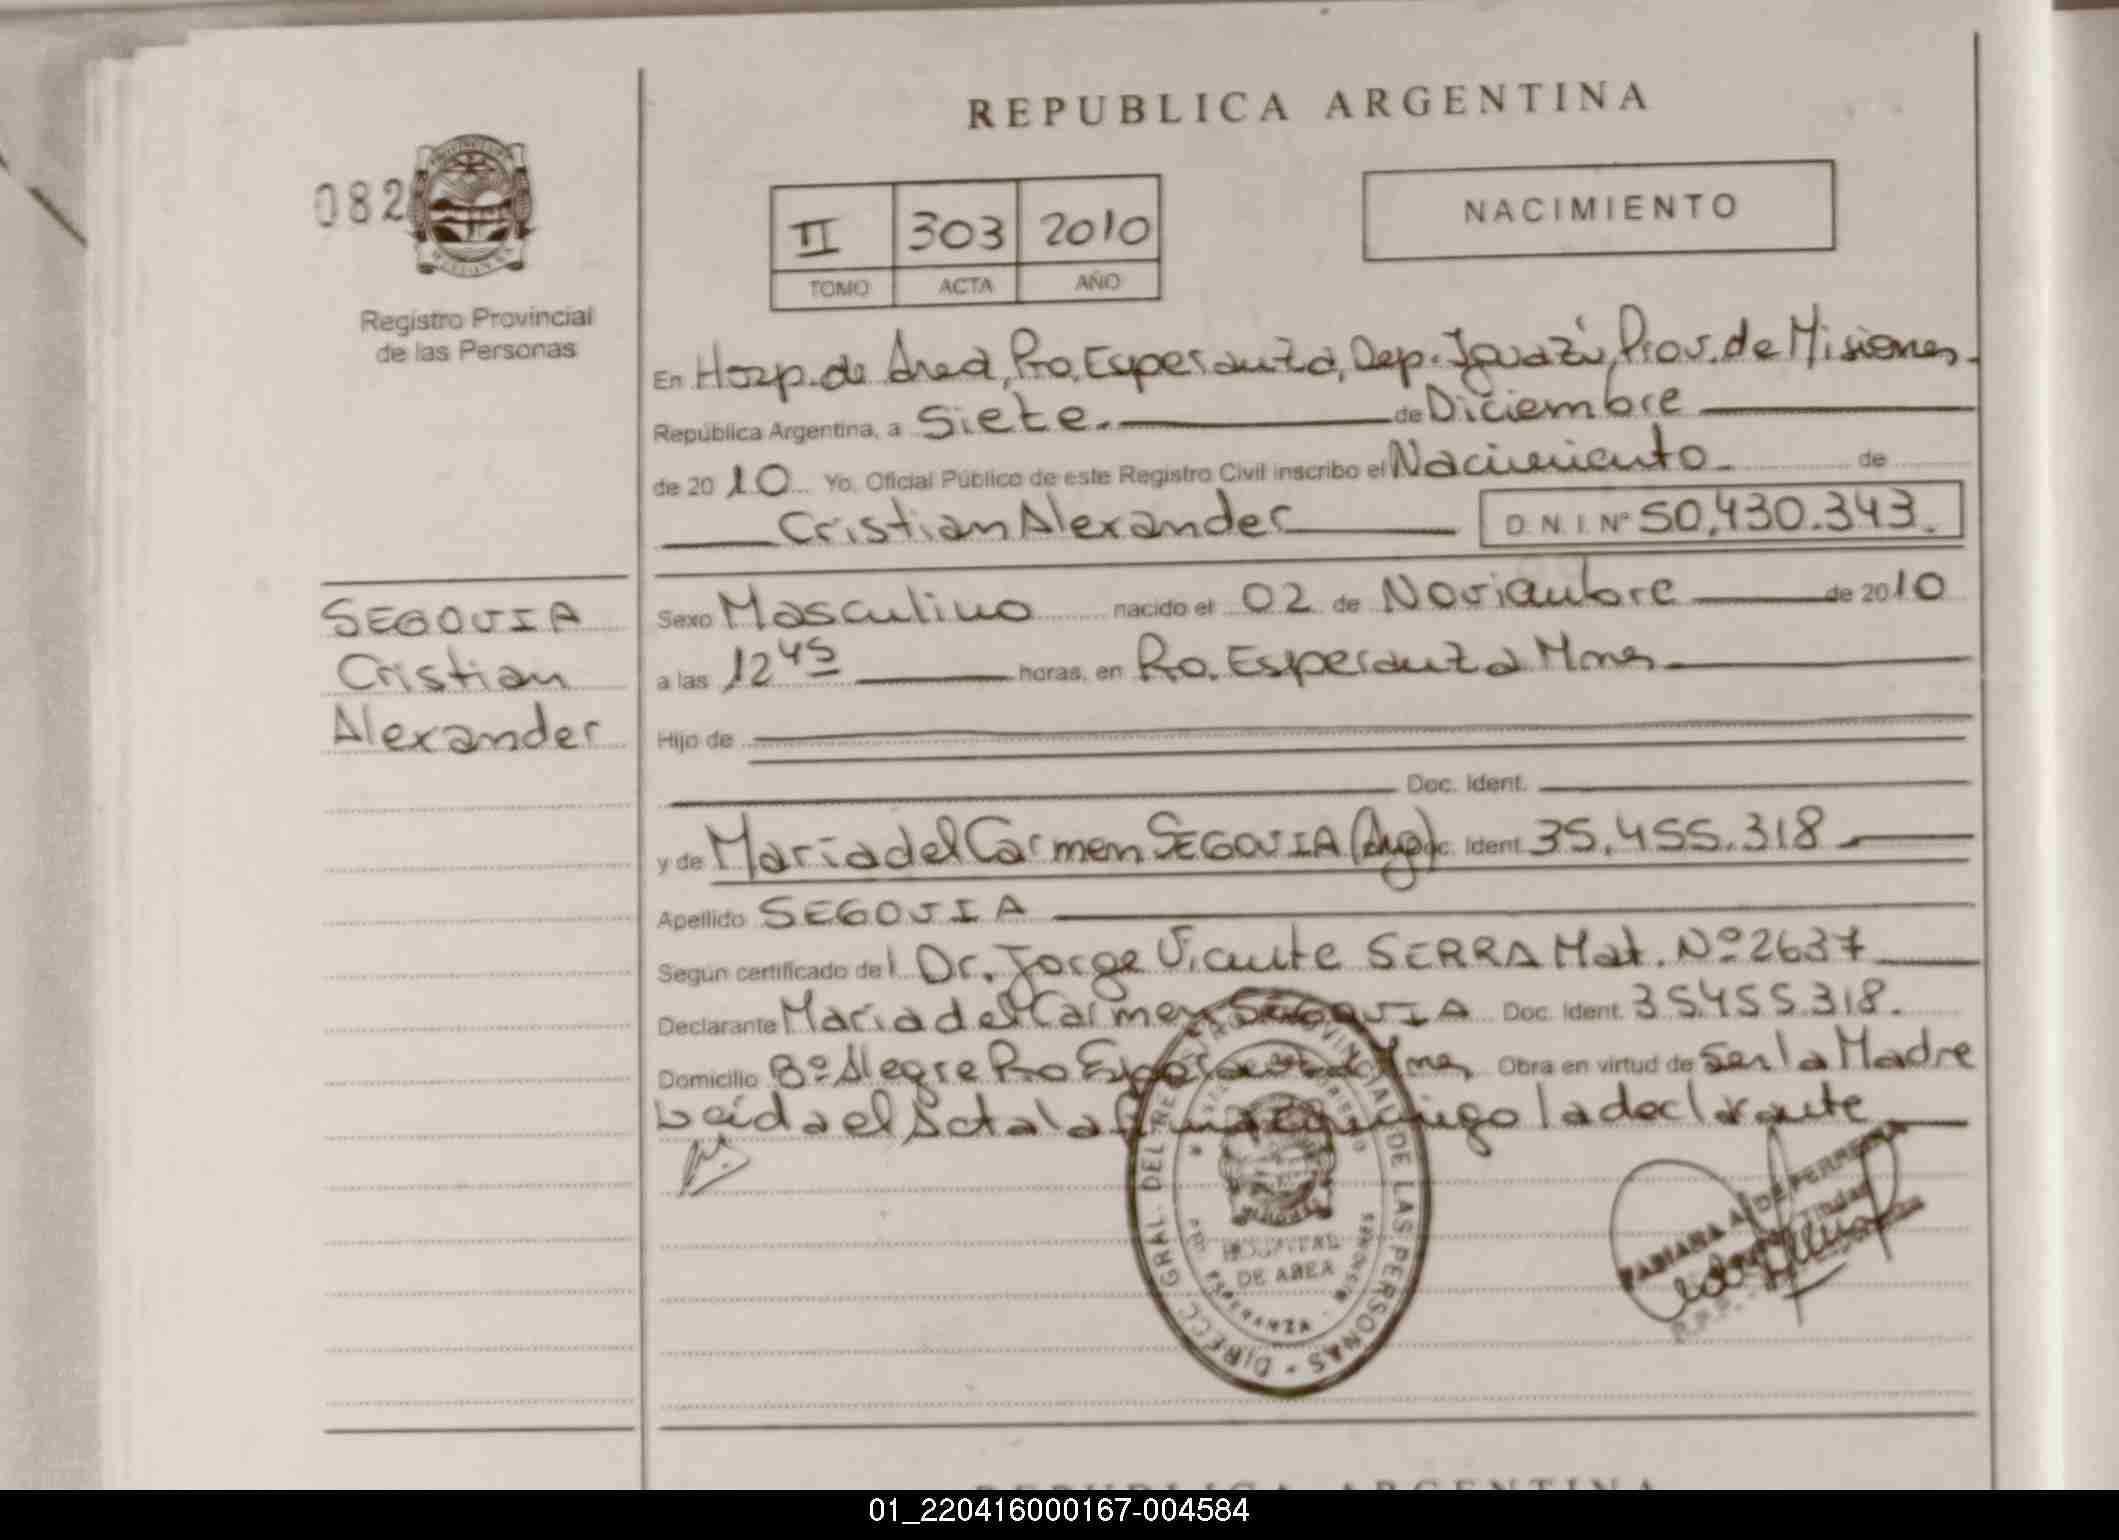 REPUBLICA ARGENTINA
082
NACIMIENTO
II 303 2010
TOMO ACTA AÑO
Registro Provincial
de las Personas
En Hosp. de Area, Pto. Esperanza, Dep. Iguazú, Prov. de Misiones.
República Argentina, a Siete. de Diciembre
de 2010 Yo, Oficial Público de este Registro Civil inscribo el Nacimiento. de
Cristian Alexander D.N.I. Nº 50.430.343.
SEGOVIA
Cristian
Alexander
Sexo Masculino nacido el 02 de Noviembre de 2010
a las 12 45 horas, en Pto. Esperanza Mnes
Hijo de
Doc. Ident.
y de Maria del Carmen SEGOVIA (Arg) Doc. Ident. 35.455.318
Apellido SEGOVIA
Según certificado del Dr. Jorge Vicente SERRA Mat. Nº 2637
Declarante Maria del Carmen SEGOVIA Doc. Ident. 35.455.318.
Domicilio Bº Alegre Pto Esperanza Mnes Obra en virtud de Ser la Madre
Leída el Acta la firma conmigo la declarante
DIRECC. GRAL. DEL REG. PROVINCIAL DE LAS PERSONAS
HOSPITAL
DE AREA
ESPERANZA - MISIONES
FABIANA A. DE FERREYRA
REPUBLICA ARGENTINA
01_220416000167-004584